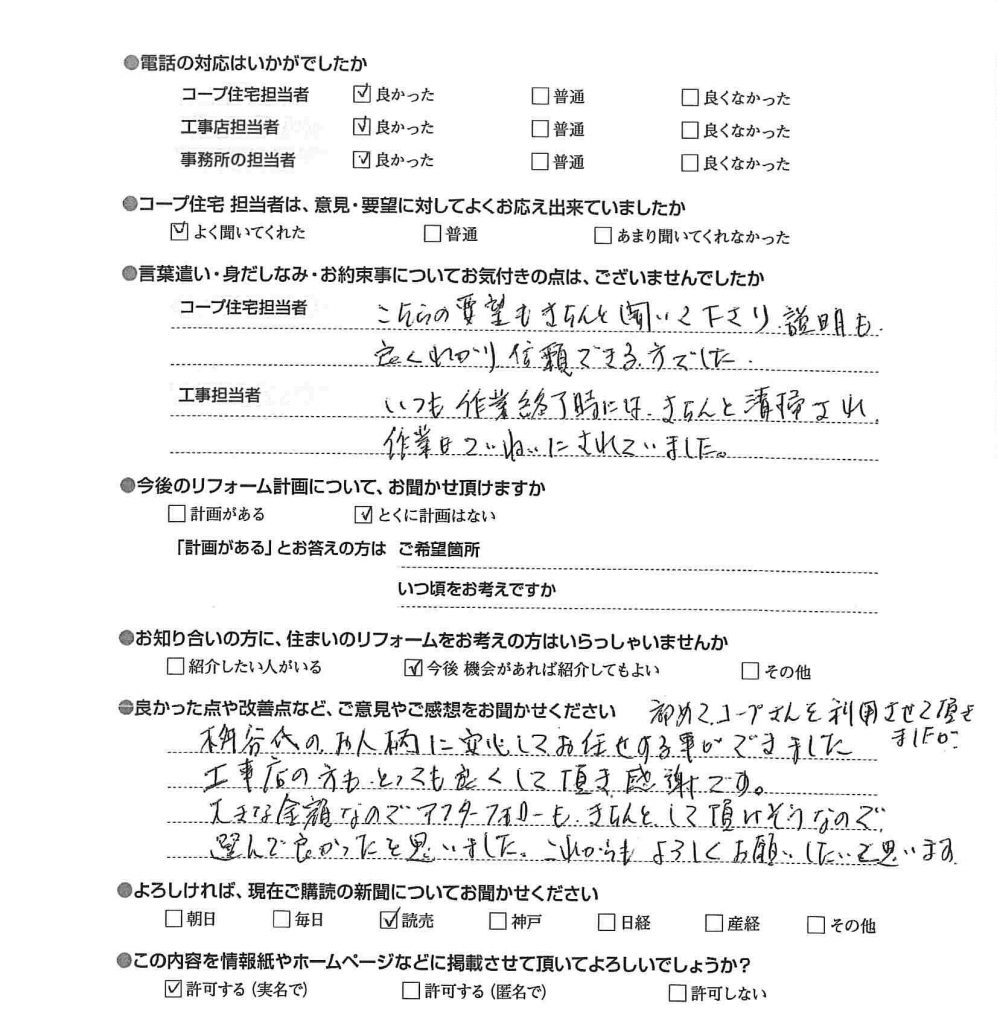 ●電話の対応はいかがでしたか
コープ住宅担当者 ☑良かった □普通 □良くなかった
工事店担当者 ☑良かった □普通 □良くなかった
事務所の担当者 ☑良かった □普通 □良くなかった
●コープ住宅 担当者は、意見・要望に対してよくお応え出来ていましたか
☑よく聞いてくれた □普通 □あまり聞いてくれなかった
●言葉遣い・身だしなみ・お約束事についてお気付きの点は、ございませんでしたか
コープ住宅担当者 こちらの要望もきちんと聞いて下さり、説明も
良くわかり信頼できる方でした。
工事担当者 いつも作業終了時には、きちんと清掃され、
作業はていねいにされていました。
●今後のリフォーム計画について、お聞かせ頂けますか
□計画がある ☑とくに計画はない
「計画がある」とお答えの方は ご希望箇所
いつ頃をお考えですか
●お知り合いの方に、住まいのリフォームをお考えの方はいらっしゃいませんか
□紹介したい人がいる ☑今後 機会があれば紹介してもよい □その他
●良かった点や改善点など、ご意見やご感想をお聞かせください 初めて、コープさんを利用させて頂き
ましたが、
お人柄に安心してお任せする事ができました
工事店の方も、とっても良くして頂き感謝です。
大きな金額なのでアフターフォローも、きちんとして頂けそうなので、
選んで良かったと思いました。これからもよろしくお願いしたいと思います
●よろしければ、現在ご購読の新聞についてお聞かせください
□朝日 □毎日 ☑読売 □神戸 □日経 □産経 □その他
●この内容を情報紙やホームページなどに掲載させて頂いてよろしいでしょうか？
☑許可する（実名で） □許可する（匿名で） □許可しない